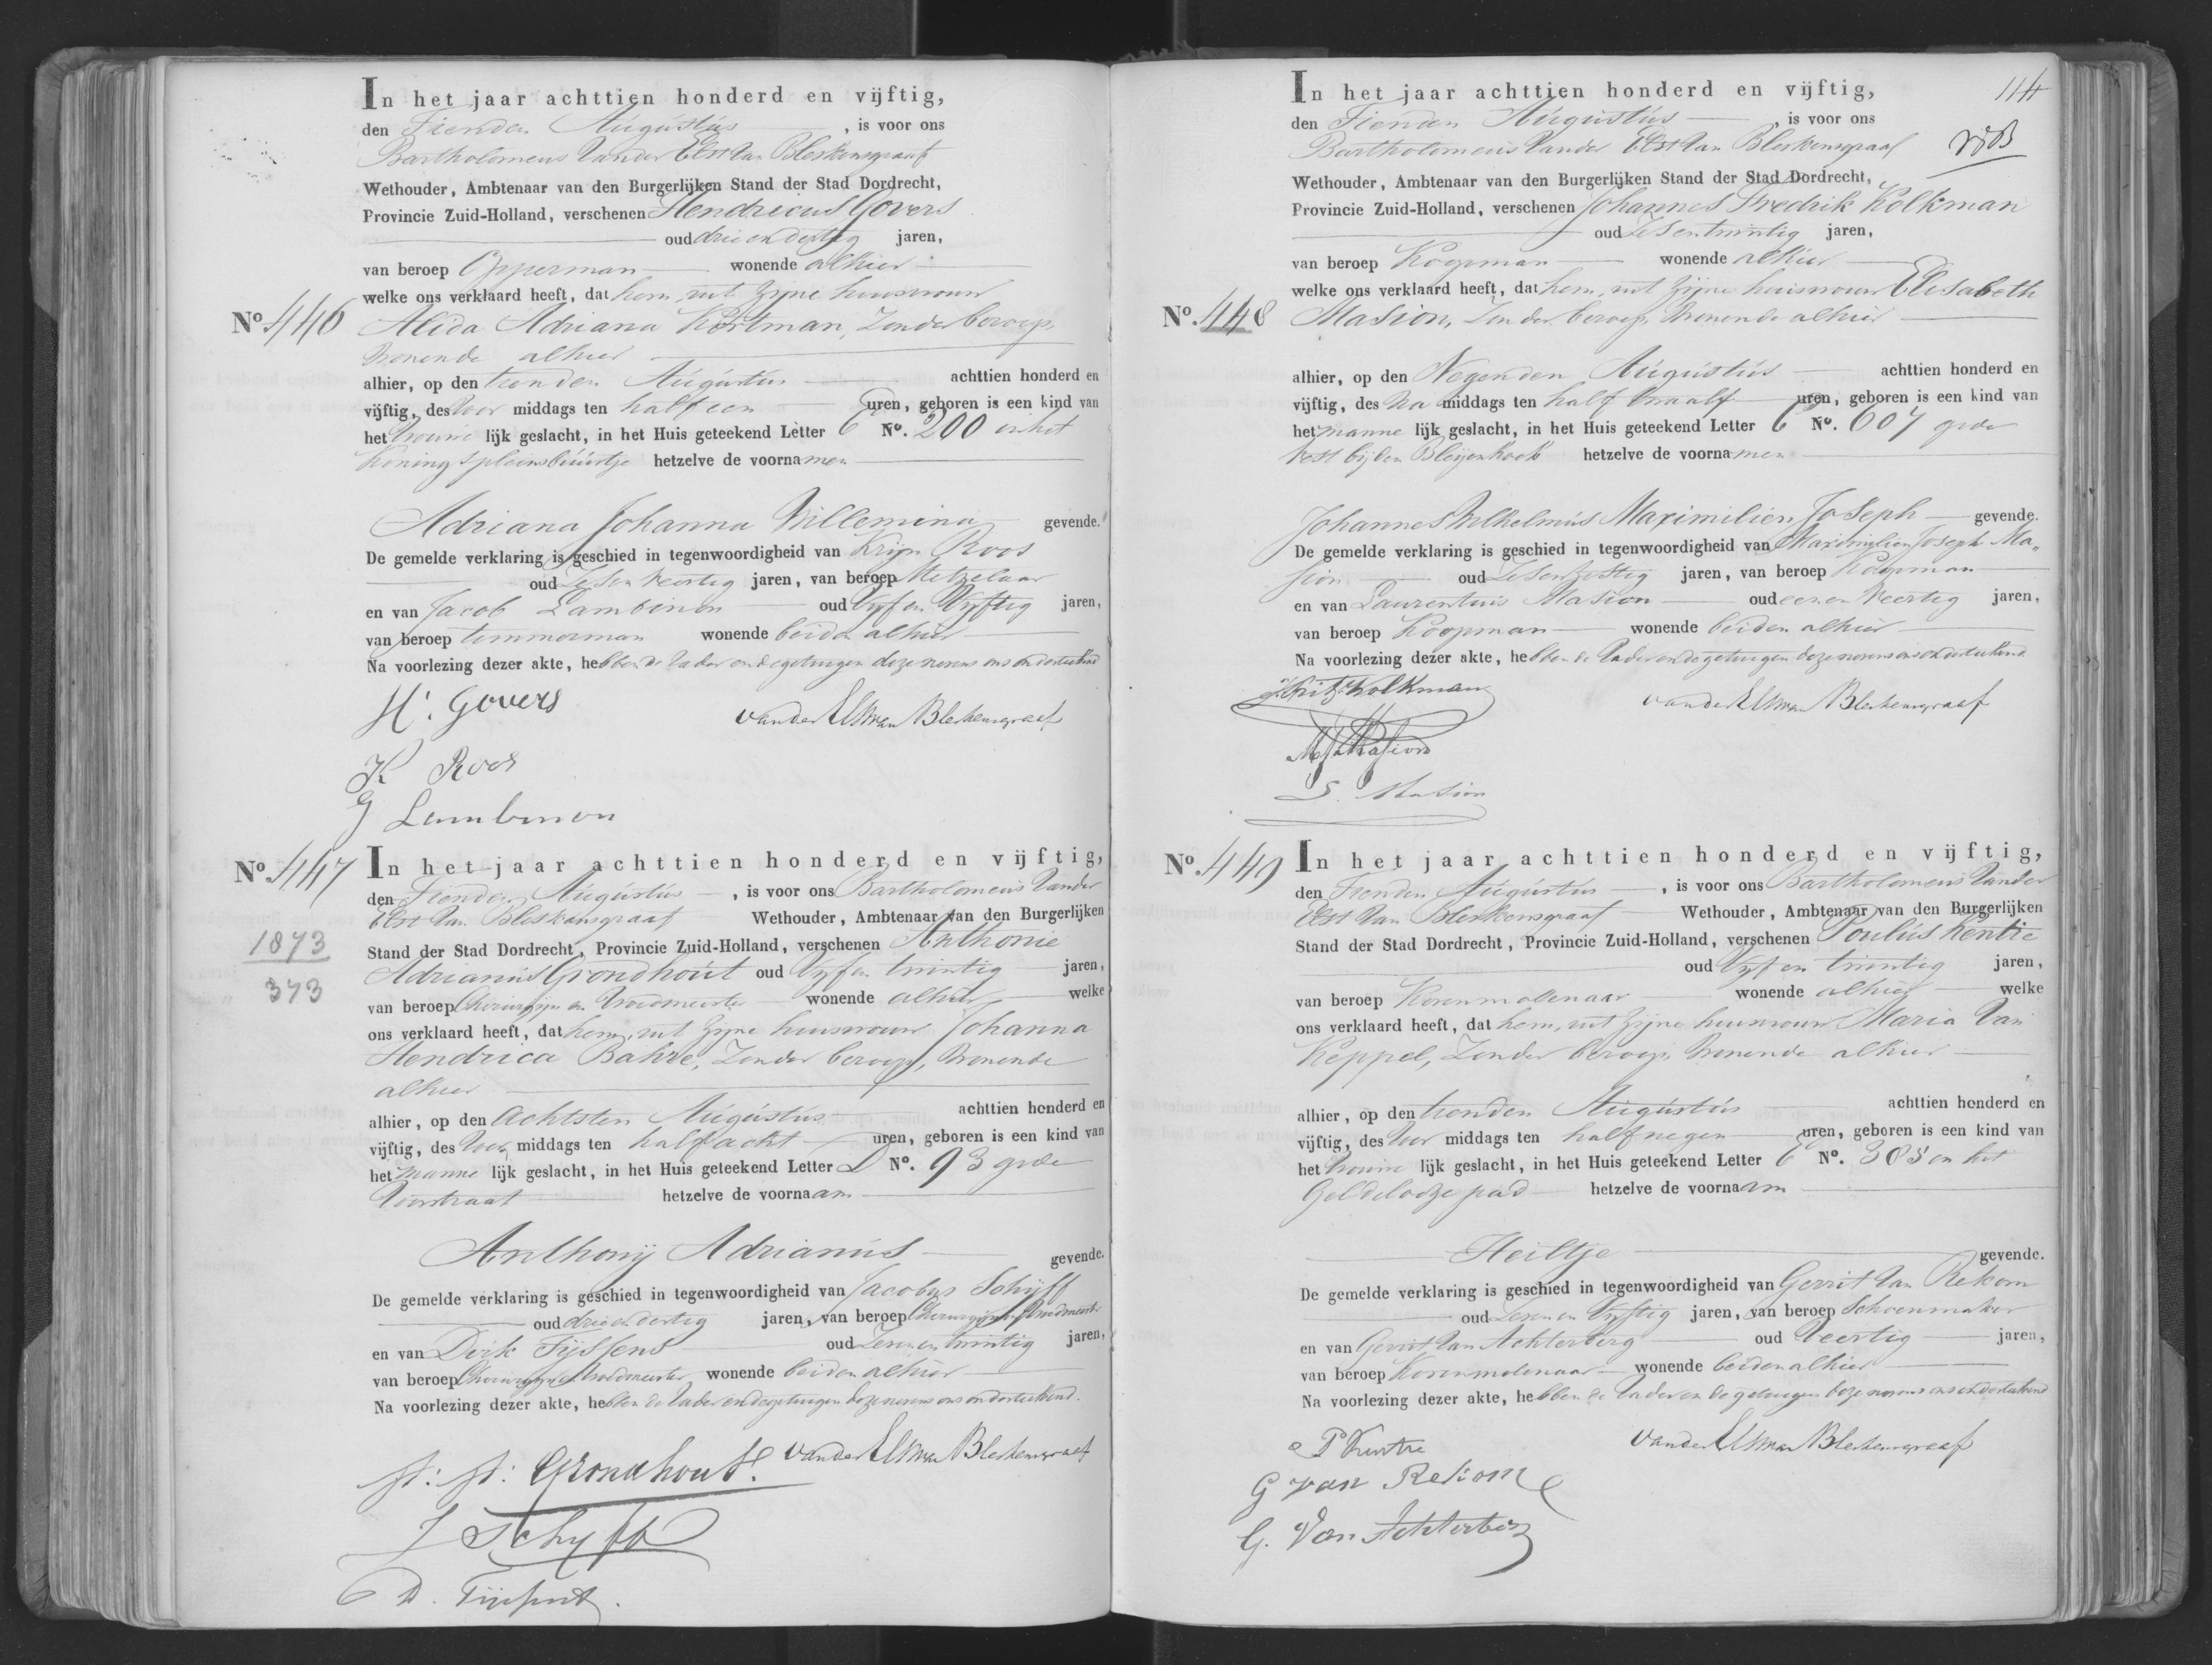 In het jaar achttien honderd en vijftig,
den Tienden Augustus , is voor ons
Bartholomeus Van der Elst Van Bleskensgraaf
Wethouder, Ambtenaar van den Burgerlijken Stand der Stad Dordrecht,
Provincie Zuid-Holland, verschenen Hendricus Govers
oud drie en dertig jaren,
van beroep Opperman wonende alhier
welke ons verklaard heeft, dat hem, uit zijne huisvrouw
No. 446 Alida Adriana Kortman, Zonder beroep,
Wonende alhier
alhier, op den tienden Augustus achttien honderd en
vijftig, des Voor middags ten half een uren, geboren is een kind van
het Vrouwe lijk geslacht, in het Huis geteekend Letter C No. 200 in het
Koningspleinsbuurtje hetzelve de voornamen
Adriana Johanna Willemina gevende.
De gemelde verklaring is geschied in tegenwoordigheid van Krijn Roos
oud Zes en Veertig jaren, van beroep Metzelaar
en van Jacob Lambinon oud Vijf en Vijftig jaren,
van beroep timmerman wonende beiden alhier
Na voorlezing dezer akte, hebben de Vader en de getuigen deze nevens ons onderteekend
H. Govers van der Elst van Bleskensgraaf
K Roos
G Lambinon
No. 447 In het jaar achttien honderd en vijftig,
den Tienden Augustus , is voor ons Bartholomeus Van der
Elst Van Bleskensgraaf Wethouder, Ambtenaar van den Burgerlijken
1873
Stand der Stad Dordrecht, Provincie Zuid-Holland, verschenen Anthonie
Adrianus Grondhout oud Vijf en twintig jaren,
373
van beroep Chirurgijn en Vroedmeester wonende alhier welke
ons verklaard heeft, dat hem, uit zijne huisvrouw Johanna
Hendrica Bahre, Zonder beroep, Wonende
alhier
alhier, op den Achtsten Augustus achttien honderd en
vijftig, des Voor middags ten half acht uren, geboren is een kind van
het manne lijk geslacht, in het Huis geteekend Letter D No. 93 grde
Voorstraat hetzelve de voornaam
Anthonij Adrianus gevende.
De gemelde verklaring is geschied in tegenwoordigheid van Jacobus Schijff
oud drie en dertig jaren, van beroep Chirurgijn en Vroedmeester
en van Dirk Tijssens oud Zeven en twintig jaren,
van beroep Chirurgijn en Vroedmeester wonende beiden alhier
Na voorlezing dezer akte, hebben de Vader en de getuigen deze nevens ons onderteekend.
A: A: Grondhout. van der Elst van Bleskensgraaf
J Schyff
D. Tijssens.
114
In het jaar achttien honderd en vijftig,
den Tienden Augustus , is voor ons
Bartholomeus Van der Elst Van Bleskensgraaf
Wethouder, Ambtenaar van den Burgerlijken Stand der Stad Dordrecht,
Provincie Zuid-Holland, verschenen Johannes Fredrik Kolkman
oud Zes en twintig jaren,
van beroep Koopman wonende alhier
welke ons verklaard heeft, dat hem, uit zijne huisvrouw Elisabeth
No. 448 Masion, Zonder beroep, Wonende alhier
alhier, op den Negenden Augustus achttien honderd en
vijftig, des Na middags ten half twaalf uren, geboren is een kind van
het manne lijk geslacht, in het Huis geteekend Letter C No. 607 grde
Vest bij den Bleijenhoek hetzelve de voornamen
Johannes Wilhelmus Maximilien Joseph gevende.
De gemelde verklaring is geschied in tegenwoordigheid van Maximilien Joseph Ma„
sion oud Zes en Zestig jaren, van beroep Koopman
en van Laurentuis Masion oud een en Veertig jaren,
van beroep Koopman wonende beiden alhier
Na voorlezing dezer akte, hebben de Vader en de getuigen deze nevens ons onderteekend.
J. Fritz Kolkman van der Elst van Bleskensgraaf
M J Masion
L. Masion
No. 449 In het jaar achttien honderd en vijftig,
den Tienden Augustus , is voor ons Bartholomeus Van der
Elst Van Bleskensgraaf Wethouder, Ambtenaar van den Burgerlijken
Stand der Stad Dordrecht, Provincie Zuid-Holland, verschenen Poulus Kentie
oud Vijf en twintig jaren,
van beroep Korenmollenaar wonende alhier welke
ons verklaard heeft, dat hem, uit zijne huisvrouw Maria Van
Keppel, Zonder beroep, Wonende alhier
alhier, op den tienden Augustus achttien honderd en
vijftig, des Voor middags ten half negen uren, geboren is een kind van
het Vrouwe lijk geslacht, in het Huis geteekend Letter C No. 305 in het
Geldelooze pad hetzelve de voornaam
Heiltje gevende.
De gemelde verklaring is geschied in tegenwoordigheid van Gerrit Van Rekom
oud Zeven en Vijftig jaren, van beroep Schoenmaker
en van Gerrit Van Achterberg oud Veertig jaren,
van beroep Korenmolenaar wonende beiden alhier
Na voorlezing dezer akte, hebben de Vader en de getuigen deze nevens ons onderteekend
P Kentie van der Elst van Bleskensgraaf
G van Rekom
G. Van Achterberg